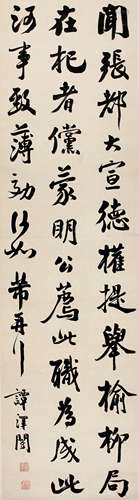 聞張都大宣德權提舉榆柳局
在杞者儻蒙明公薦此職為成此
河事致薄効何如芾再行
譚澤闓